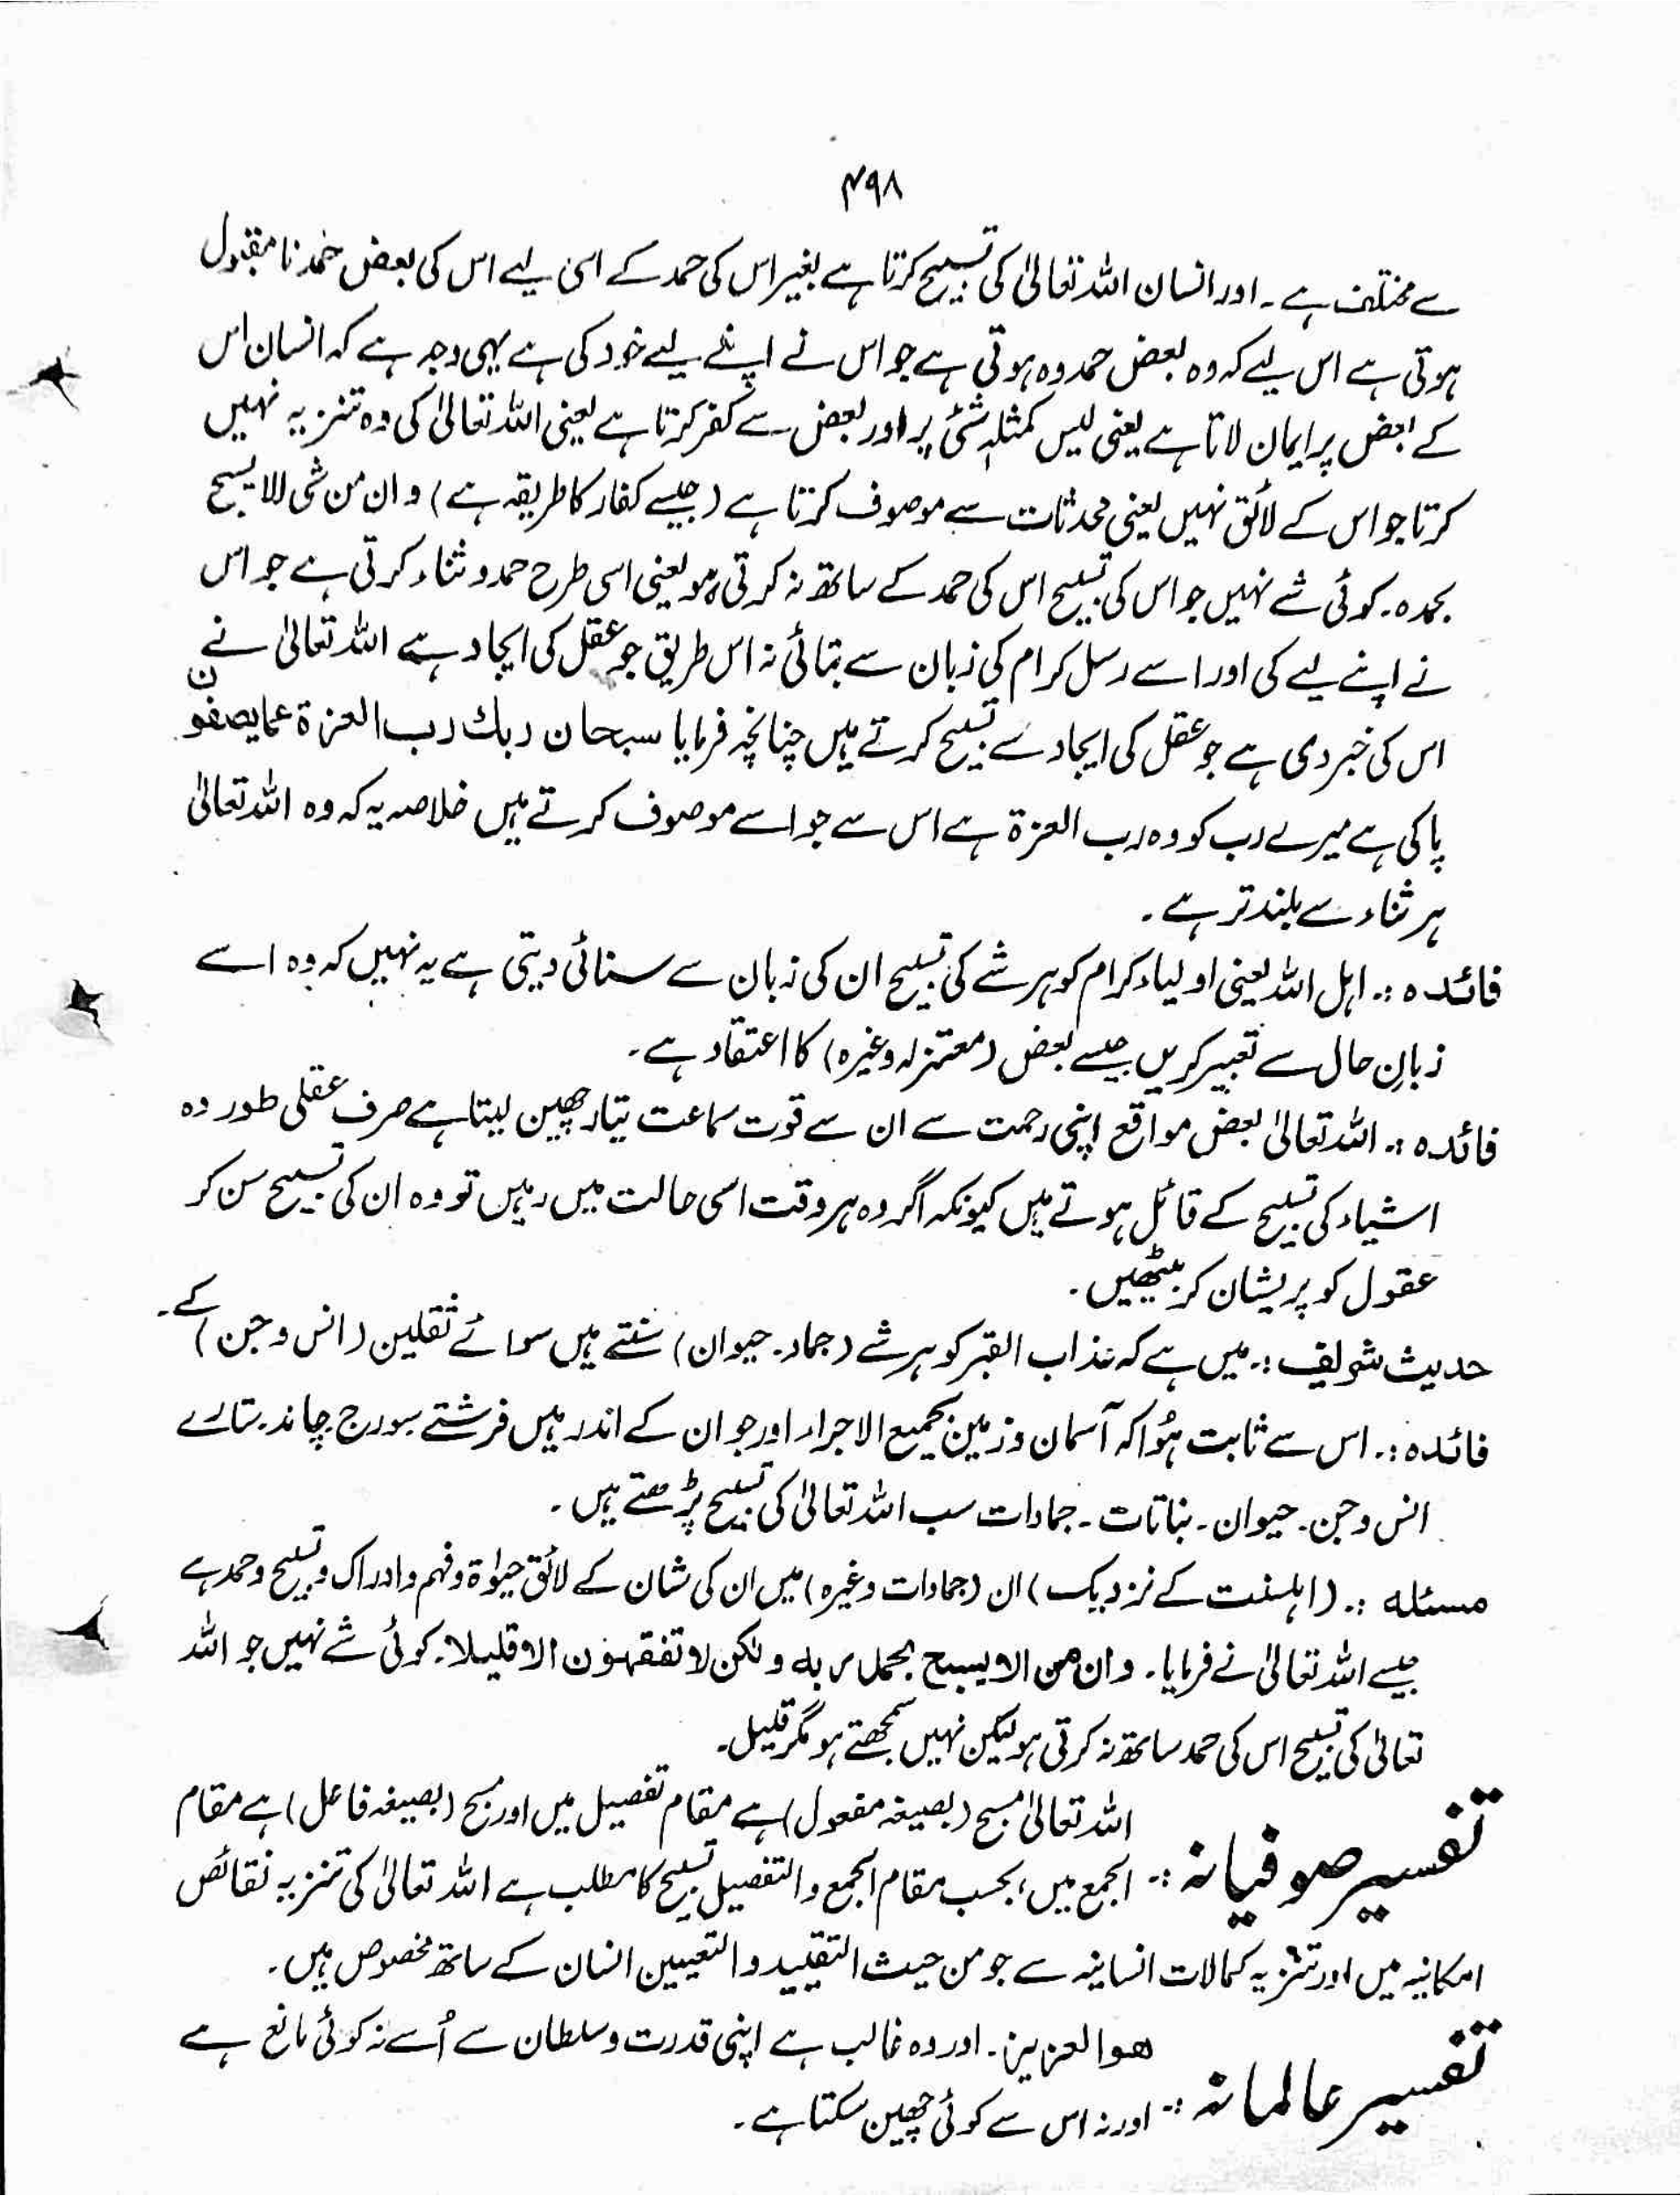 ۴۹۸
سے مختلف ہے ۔ اور انسان اللہ تعالیٰ کی تسبیح کرتا ہے بغیر اس کی حمد کے اسی لیے اس کی بعض حمد نامقبول
ہوتی ہے اس لیے کہ وہ بعض حمد وہ ہوتی ہے جو اس نے اپنے لیے خود کی ہے یہی وجہ ہے کہ انسان اس
کے بعض پر ایمان لاتا ہے یعنی لیس کمثلہ شئ پر اور بعض سے کفر کرتا ہے یعنی اللہ تعالیٰ کی وہ تنزیہ نہیں
کرتا جو اس کے لائق نہیں یعنی محدثات سے موصوف کرتا ہے (جیسے کفار کا طریقہ ہے) و ان من شی للا یسبح
بحمدہ ۔ کوئی شے نہیں جو اس کی تسبیح اس کی حمد کے ساتھ نہ کرتی ہو یعنی اسی طرح حمد و ثناء کرتی ہے جو اس
نے اپنے لیے کی اور اسے رسل کرام کی زبان سے بتائی نہ اس طریق جو عقل کی ایجاد ہے اللہ تعالیٰ نے
اس کی خبر دی ہے جو عقل کی ایجاد سے تسبیح کرتے ہیں چنانچہ فرمایا سبحان ربك رب العزة عما یصفون
پاکی ہے میرے رب کو وہ رب العزۃ ہے اس سے جو اسے موصوف کرتے ہیں خلاصہ یہ کہ وہ اللہ تعالیٰ
ہر ثناء سے بلند تر ہے ۔
فائدہ :۔ اہل اللہ یعنی اولیاء کرام کو ہر شے کی تسبیح ان کی زبان سے سنائی دیتی ہے یہ نہیں کہ وہ اسے
زبانِ حال سے تعبیر کریں جیسے بعض (معتزلہ وغیرہ) کا اعتقاد ہے ۔
فائدہ :۔ اللہ تعالیٰ بعض مواقع اپنی رحمت سے ان سے قوت سماعت تیار چھین لیتا ہے صرف عقلی طور وہ
اشیاء کی تسبیح کے قائل ہوتے ہیں کیونکہ اگر وہ ہر وقت اسی حالت میں رہیں تو وہ ان کی تسبیح سن کر
عقول کو پریشان کر بیٹھیں ۔
حدیث شریف :۔ میں ہے کہ عذاب القبر کو ہر شے (جماد ۔ حیوان) سنتے ہیں سوائے ثقلین (انس و جن) کے ۔
فائدہ :۔ اس سے ثابت ہُوا کہ آسمان و زمین بجمیع الاجراء اور جو ان کے اندر ہیں فرشتے سورج چاند ستارے
انس و جن ۔ حیوان ۔ بناتات ۔ جمادات سب اللہ تعالیٰ کی تسبیح پڑھتے ہیں ۔
مسئلہ :۔ (اہلسنت کے نزدیک) ان (جمادات وغیرہ) میں ان کی شان کے لائق حیوٰۃ و فہم و ادراک و تسبیح و حمد ہے
جیسے اللہ تعالیٰ نے فرمایا ۔ و ان من الا یسبح بحمد ربه و لکن لا تفقهون الا قلیلا ۔ کوئی شے نہیں جو اللہ
تعالیٰ کی تسبیح اس کی حمد ساتھ نہ کرتی ہو لیکن نہیں سمجھتے ہو مگر قلیل ۔
تفسیر صوفیانہ :۔ اللہ تعالیٰ مسبح (بصیغہ مفعول) ہے مقام تفصیل میں اور مسبح (بصیغہ فاعل) ہے مقام
الجمع میں، بحسب مقام الجمع و التفصیل تسبیح کا مطلب ہے اللہ تعالیٰ کی تنزیہ نقائص
امکانیہ میں اور تنزیہ کمالات انسانیہ سے جو من حیث التقیید و التعیین انسان کے ساتھ مخصوص ہیں ۔
تفسیر عالمانہ :۔ ھو العزیز ۔ اور وہ غالب ہے اپنی قدرت و سلطان سے اُسے نہ کوئی مانع ہے
اور نہ اس سے کوئی چھین سکتا ہے ۔